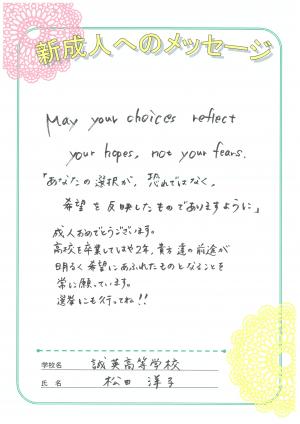 新成人へのメッセージ
May your choices reflect
your hopes, not your fears.
「あなたの選択が、恐れではなく、
希望を反映したものでありますように」
成人おめでとうございます。
高校を卒業してはや2年、貴方達の前途が
明るく希望にあふれたものとなることを
常に願っています。
選挙にも行ってね!!
学校名 誠英高等学校
氏名 松田 洋子